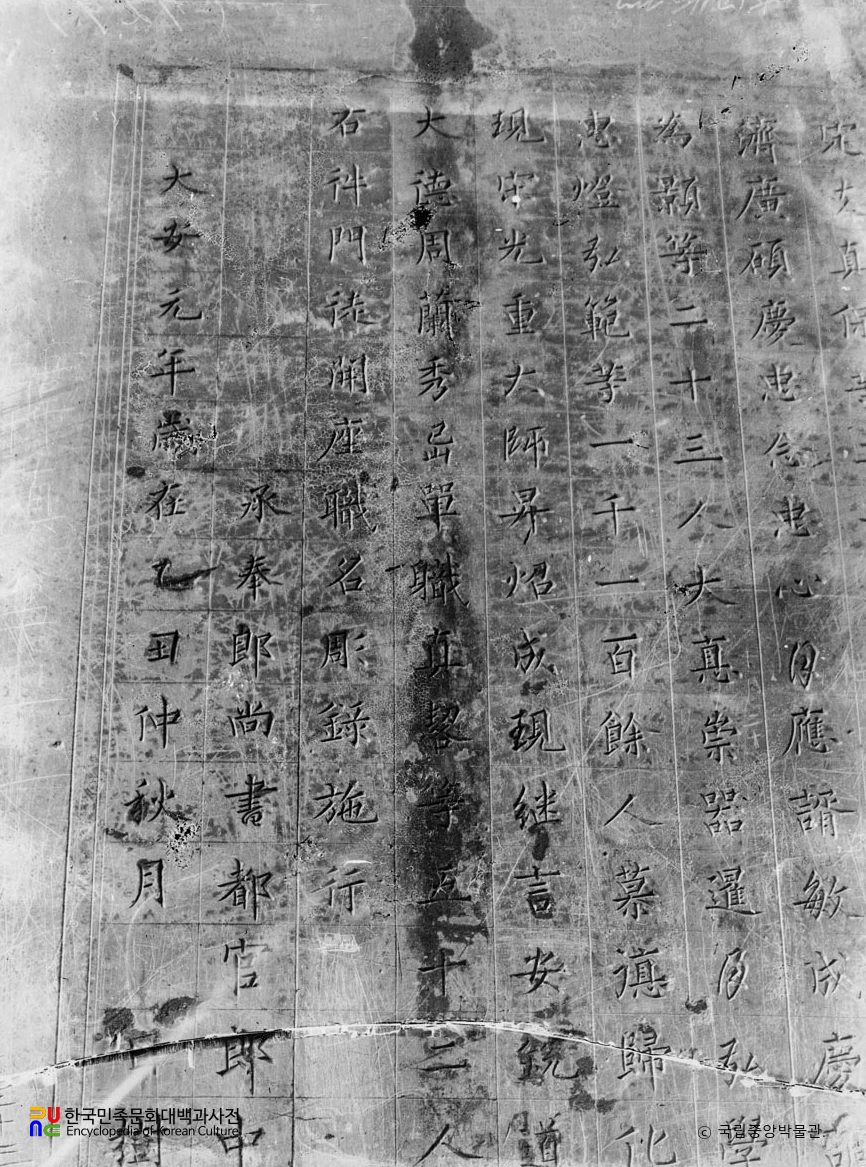 真
濟廣碩慶忠念忠心月應諝敏成慶
為顥等二十三人大真崇器暹月弘學
忠燈弘範等一千一百餘人慕德歸化
現光重大師昇炤成現继言安銳道
大德周蘭秀嵒單職真等五十二人
右件門徒開座職名彫錄施行
承奉郎尚書都官郎中
大安元年歲在乙丑仲秋月日樹
한국민족문화대백과사전
Encyclopedia of Korean Culture
© 국립중앙박물관